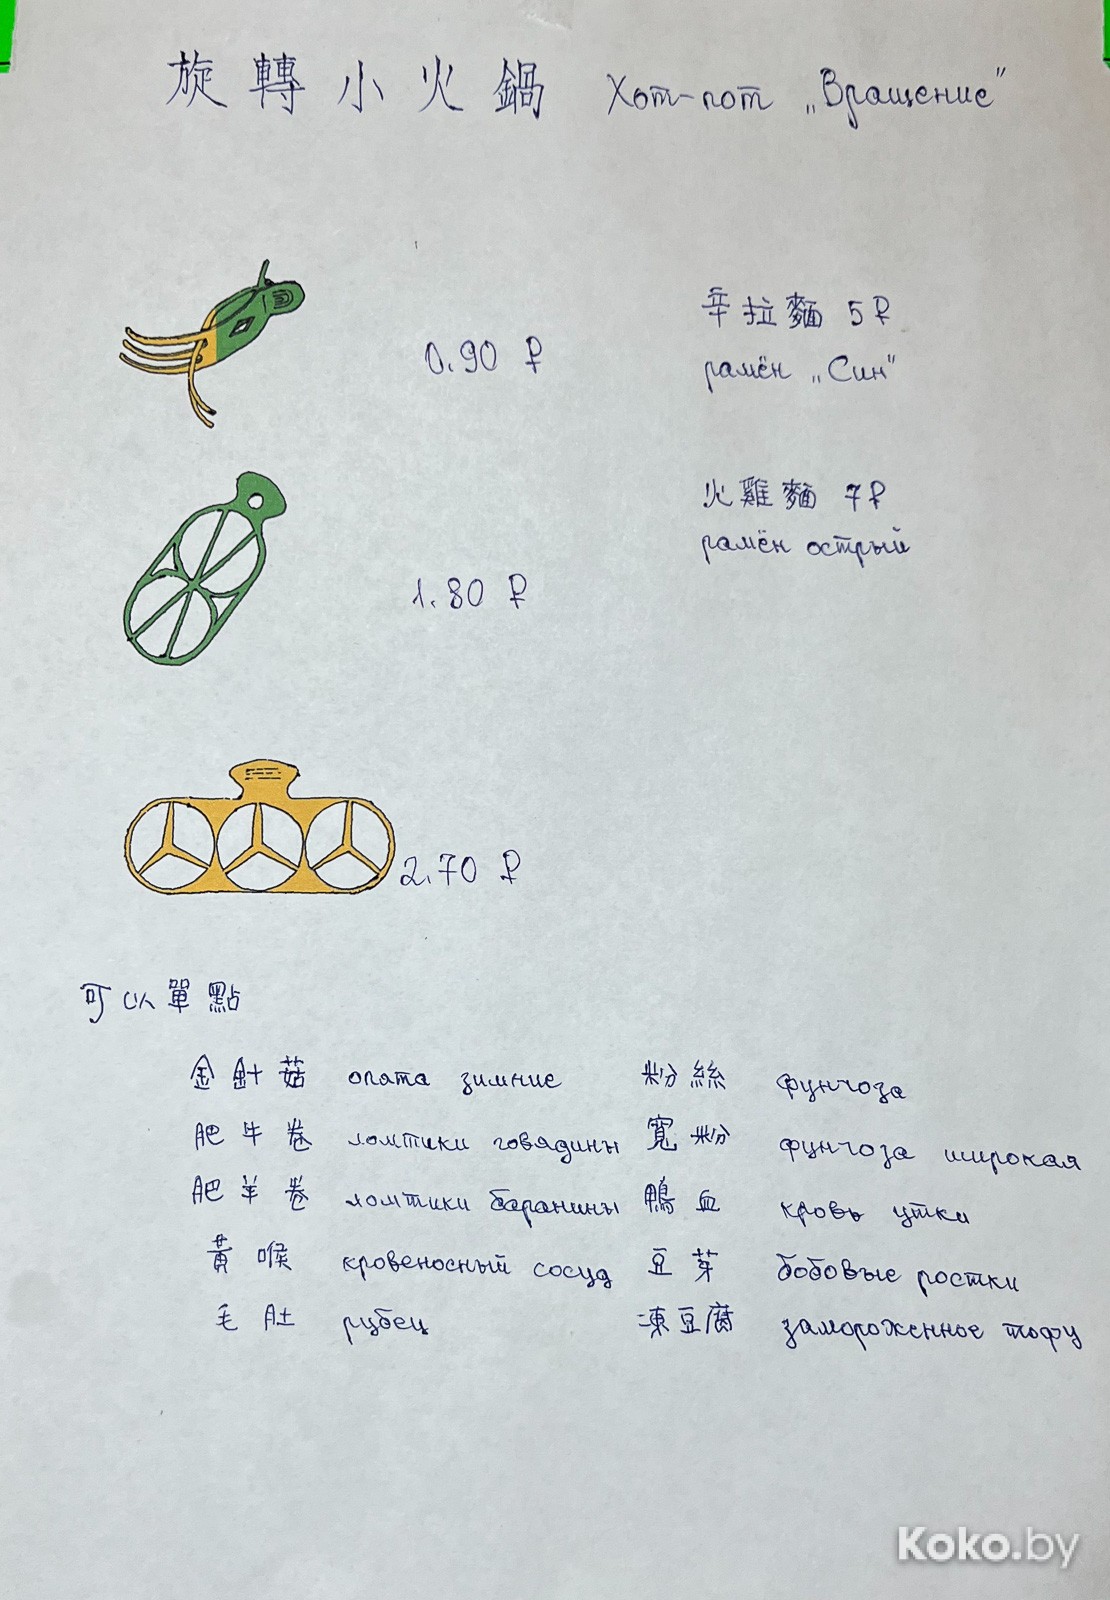 旋轉小火鍋 Хот-пот „Вращение"
0.90 ₽
辛拉麵 5₽
рамён „Син"
火雞麵 7₽
рамён острый
1.80 ₽
2.70 ₽
可以單點
金針菇 опята зимние 粉絲 фунчоза
肥牛卷 ломтики говядины 寬粉 фунчоза широкая
肥羊卷 ломтики баранины 鴨血 кровь утки
黃喉 кровеносный сосуд 豆芽 бобовые ростки
毛肚 рубец 凍豆腐 замороженное тофу
Koko.by